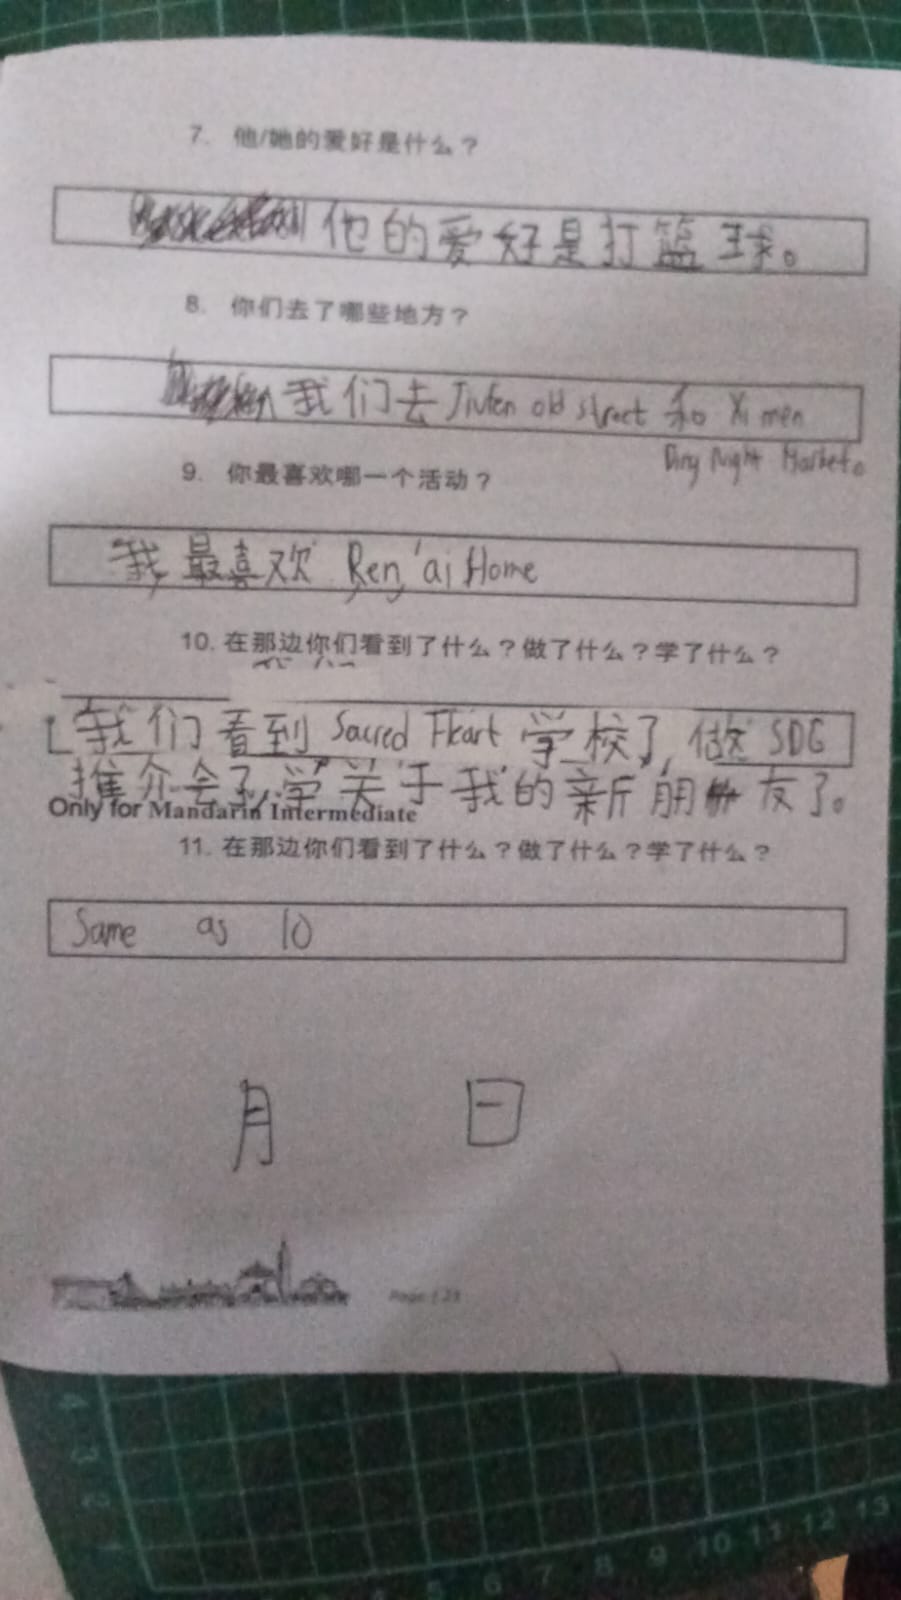 7. 他/她的爱好是什么？
他的爱好是打篮球。
8. 你们去了哪些地方？
我们去 Jiufen old street 和 Ximen
Ding Night Market。
9. 你最喜欢哪一个活动？
我最喜欢 Ren'ai Home
10. 在那边你们看到了什么？做了什么？学了什么？
我们看到 Sacred Heart 学校了, 做 SDG
推介会了, 学关于我的新朋友了。
Only for Mandarin Intermediate
11. 在那边你们看到了什么？做了什么？学了什么？
Same as 10
月 日
Page | 21
4
3
2
1
4 5 6 7 8 9 10 11 12 13